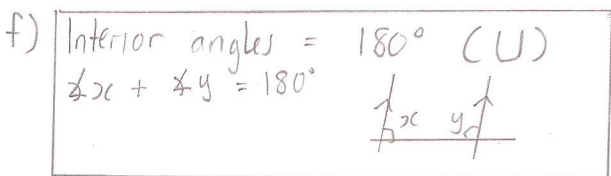 f) Interior angles = 180° (U)
∡x + ∡y = 180°
x y